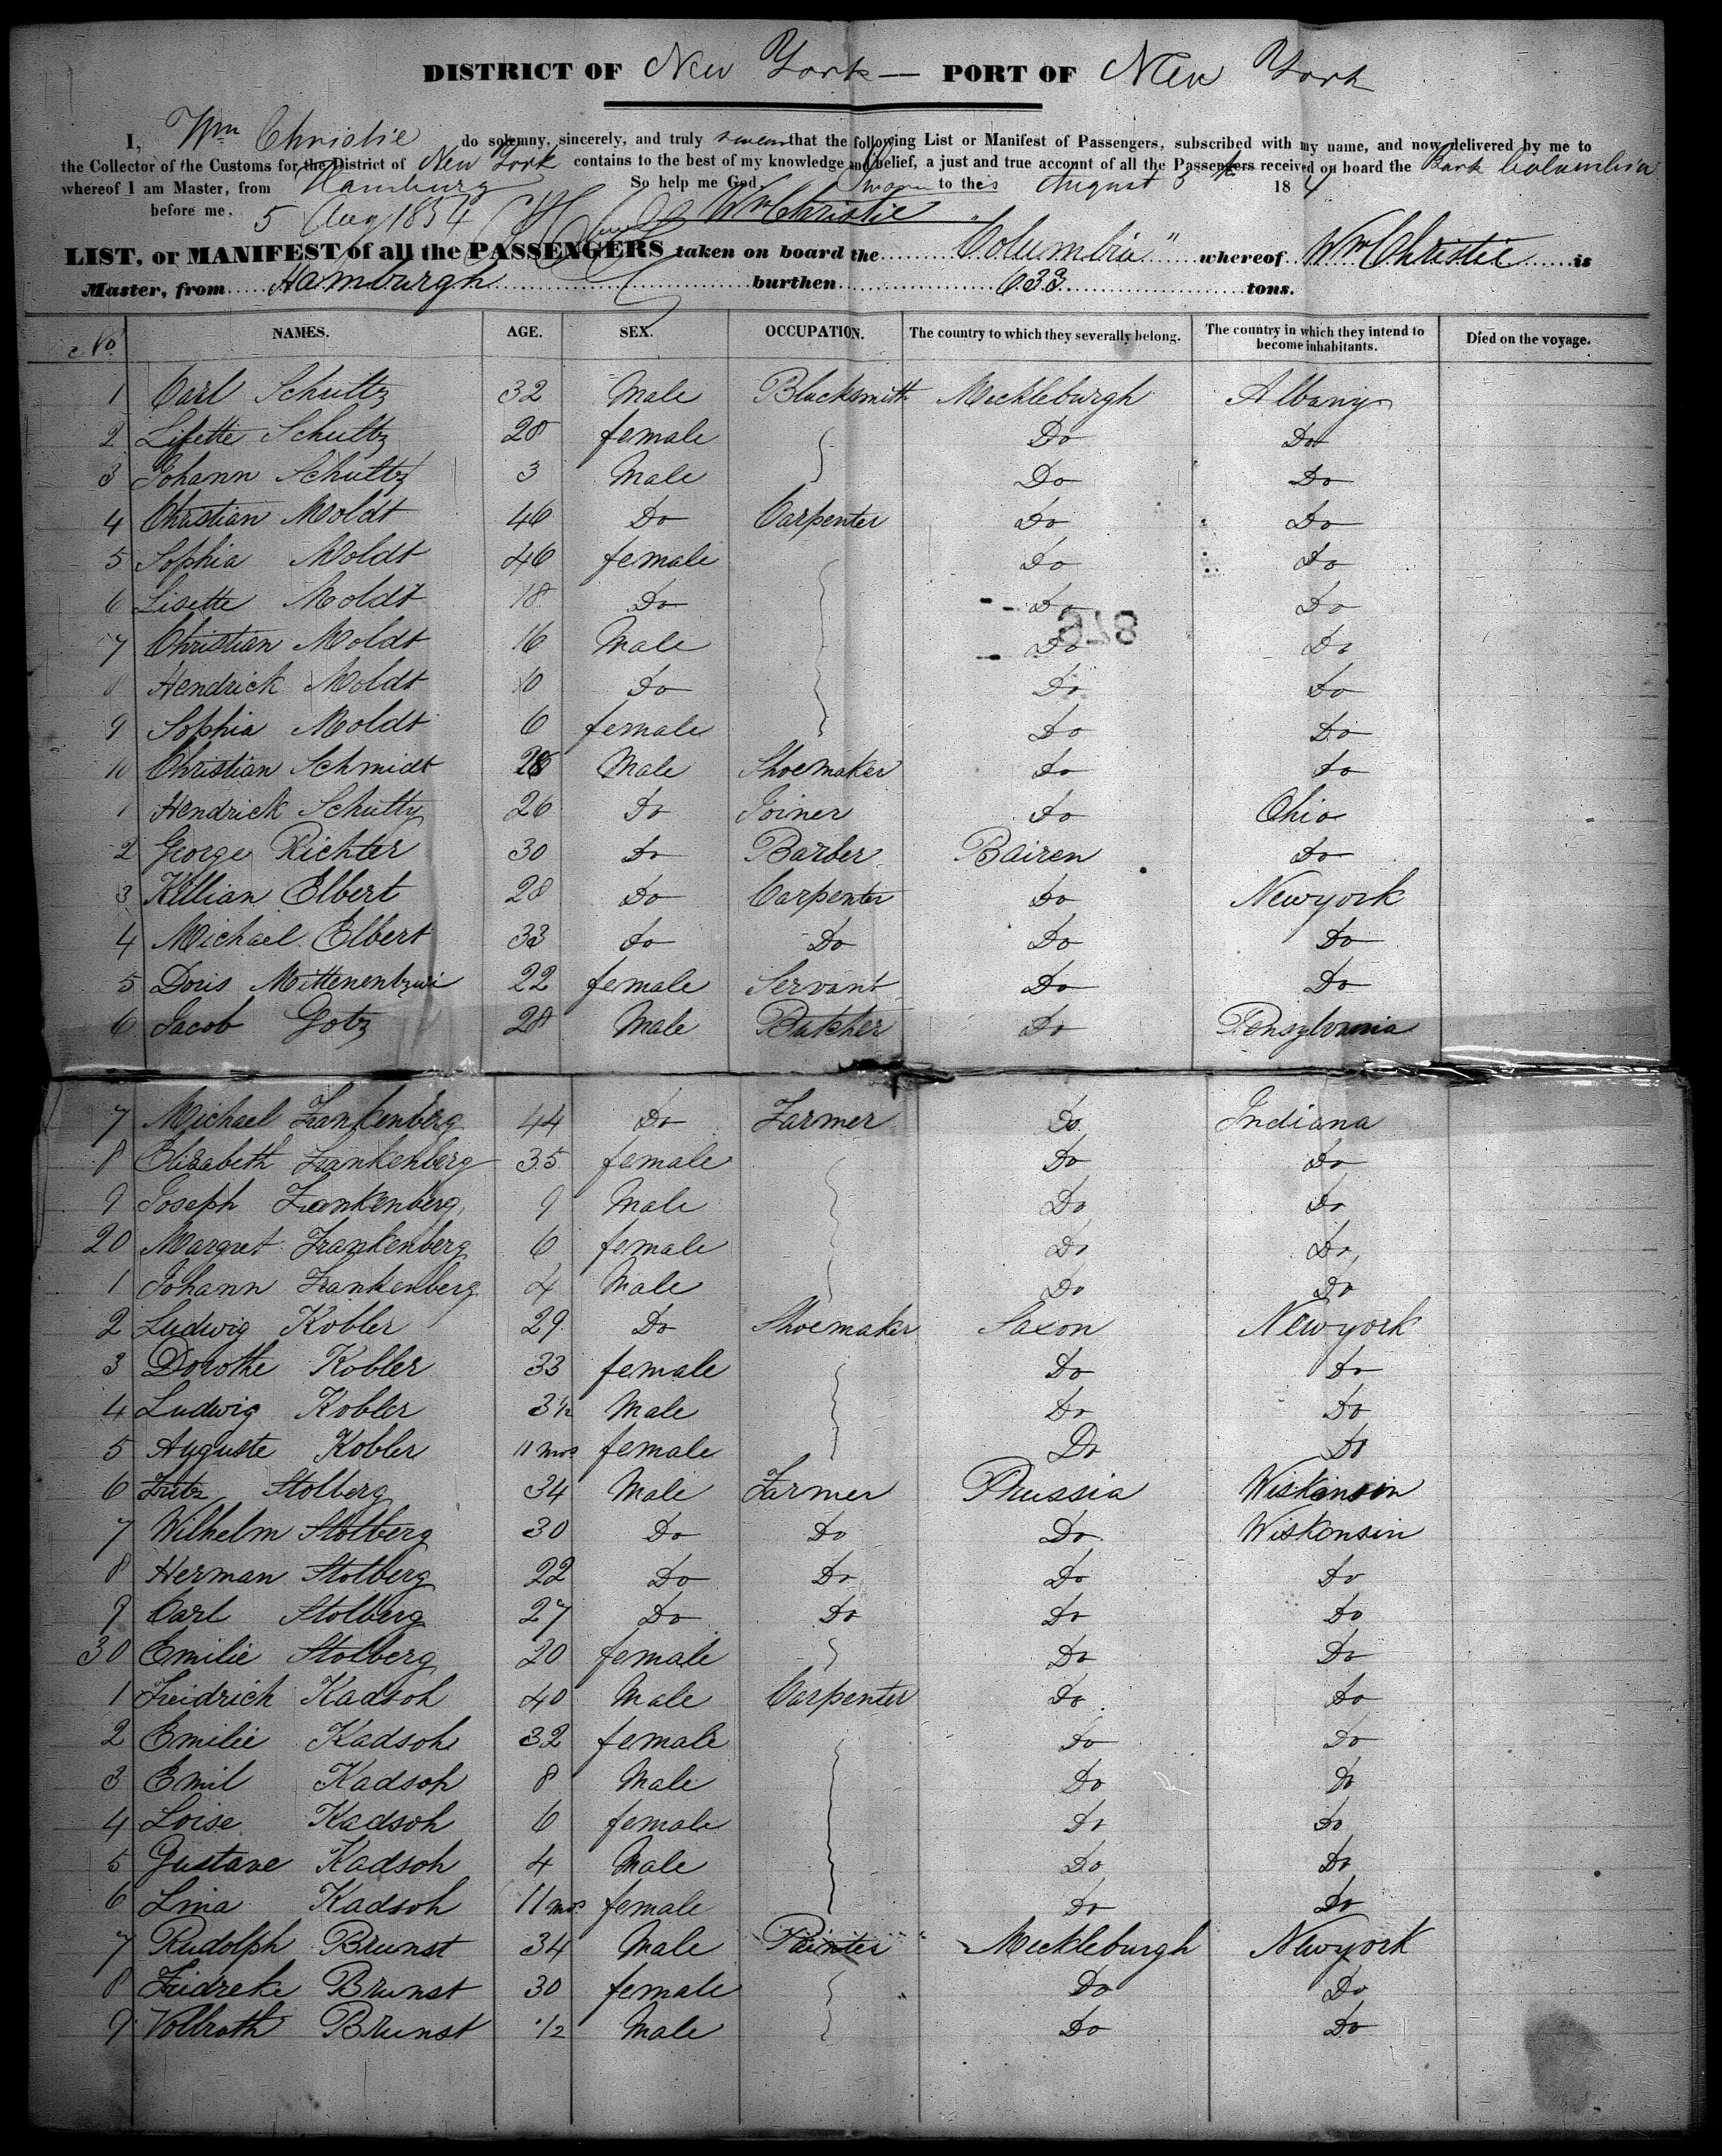 DISTRICT OF New York — PORT OF New York
I, Wm Christie do solemny, sincerely, and truly swear that the following List or Manifest of Passengers, subscribed with my name, and now delivered by me to
the Collector of the Customs for the District of New York contains to the best of my knowledge and belief, a just and true account of all the Passengers received on board the Bark Columbia
whereof I am Master, from Hamburg So help me God. Sworn to this August 5 18 4
before me. 5 Aug 1854 Wm Christie
LIST, or MANIFEST of all the PASSENGERS taken on board the "Columbia" whereof Wm Christie is
Master, from Hamburgh burthen 633 tons.
No. NAMES. AGE. SEX. OCCUPATION. The country to which they severally belong. The country in which they intend to become inhabitants. Died on the voyage.
1 Carl Schultz 32 Male Blacksmith Meckleburgh Albany
2 Lisette Schultz 28 female Do Do
3 Johann Schultz 3 Male Do Do
4 Christian Moldt 46 Do Carpenter Do Do
5 Sophia Moldt 46 female Do Do
6 Lisette Moldt 18 Do Do Do
7 Christian Moldt 16 Male Do Do
8 Hendrick Moldt 10 Do Do Do
9 Sophia Moldt 6 female Do Do
10 Christian Schmidt 28 Male Shoemaker Do Do
1 Hendrick Schultz 26 Do Joiner Do Ohio
2 George Richter 30 Do Barber Bairen Do
3 Killian Elbert 28 Do Carpenter Do Newyork
4 Michael Elbert 33 Do Do Do Do
5 Doris Mittenentzwi 22 female Servant Do Do
6 Jacob Gotz 28 Male Butcher Do Pensylvania
7 Michael Frankenberg 44 Do Farmer Do Indiana
8 Elizabeth Frankenberg 35 female Do Do
9 Joseph Frankenberg 9 Male Do Do
20 Margret Frankenberg 6 female Do Do
1 Johann Frankenberg 4 Male Do Do
2 Ludwig Kobler 29 Do Shoemaker Saxon Newyork
3 Dorothe Kobler 33 female Do Do
4 Ludwig Kobler 3½ Male Do Do
5 Auguste Kobler 11 mos female Do Do
6 Fritz Stolberg 34 Male Farmer Prussia Wiskinsin
7 Wilhelm Stolberg 30 Do Do Do Wiskonsin
8 Herman Stolberg 22 Do Do Do Do
9 Carl Stolberg 27 Do Do Do Do
30 Emilie Stolberg 20 female Do Do
1 Freidrich Kadsoh 40 Male Carpenter Do Do
2 Emilie Kadsoh 32 female Do Do
3 Emil Kadsoh 8 Male Do Do
4 Loise Kadsoh 6 female Do Do
5 Gustave Kadsoh 4 Male Do Do
6 Lina Kadsoh 11 mos female Do Do
7 Rudolph Brunst 34 Male Painter Meckleburgh Newyork
8 Fridreke Brunst 30 female Do Do
9 Vollrath Brunst ½ Male Do Do